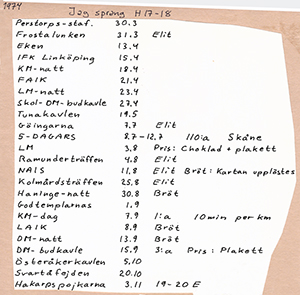 1974
Jag sprang H17-18
Perstorps-staf. 30.3
Frostalunken 31.3 Elit
Eken 13.4
IFK Linköping 15.4
KM-natt 18.4
FAIK 21.4
LM-natt 23.4
Skol-DM-budkavle 27.4
Tunakavlen 19.5
Göingarna 7.7 Elit
5-DAGARS 8.7-12.7 110:a Skåne
LM 3.8 Pris: Choklad + plakett
Ramunderträffen 4.8 Elit
NAIS 11.8 Elit Bröt: Kartan upplöstes
Kolmårdsträffen 25.8 Elit
Haninge-natt 30.8 Bröt
Godtemplarnas 1.9
KM-dag 7.9 1:a 10 min per km
LAIK 8.9 Bröt
DM-natt 13.9 Bröt
DM-budkavle 15.9 3:a Pris: Plakett
Österåkerkavlen 5.10
Svartåfejden 20.10
Hakarpspojkarna 3.11 19-20 E